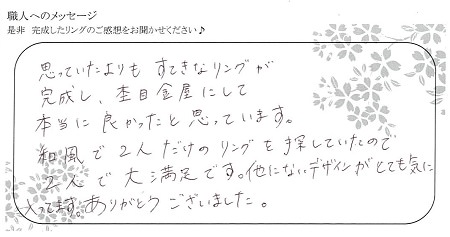 職人へのメッセージ
是非 完成したリングのご感想をお聞かせください♪
思っていたよりも すてきなリングが
完成し、杢目金屋にして
本当に良かったと思っています。
和風で2人だけのリングを探していたので
2人で大満足です。他にないデザインがとても気に
入ってます。ありがとうございました。